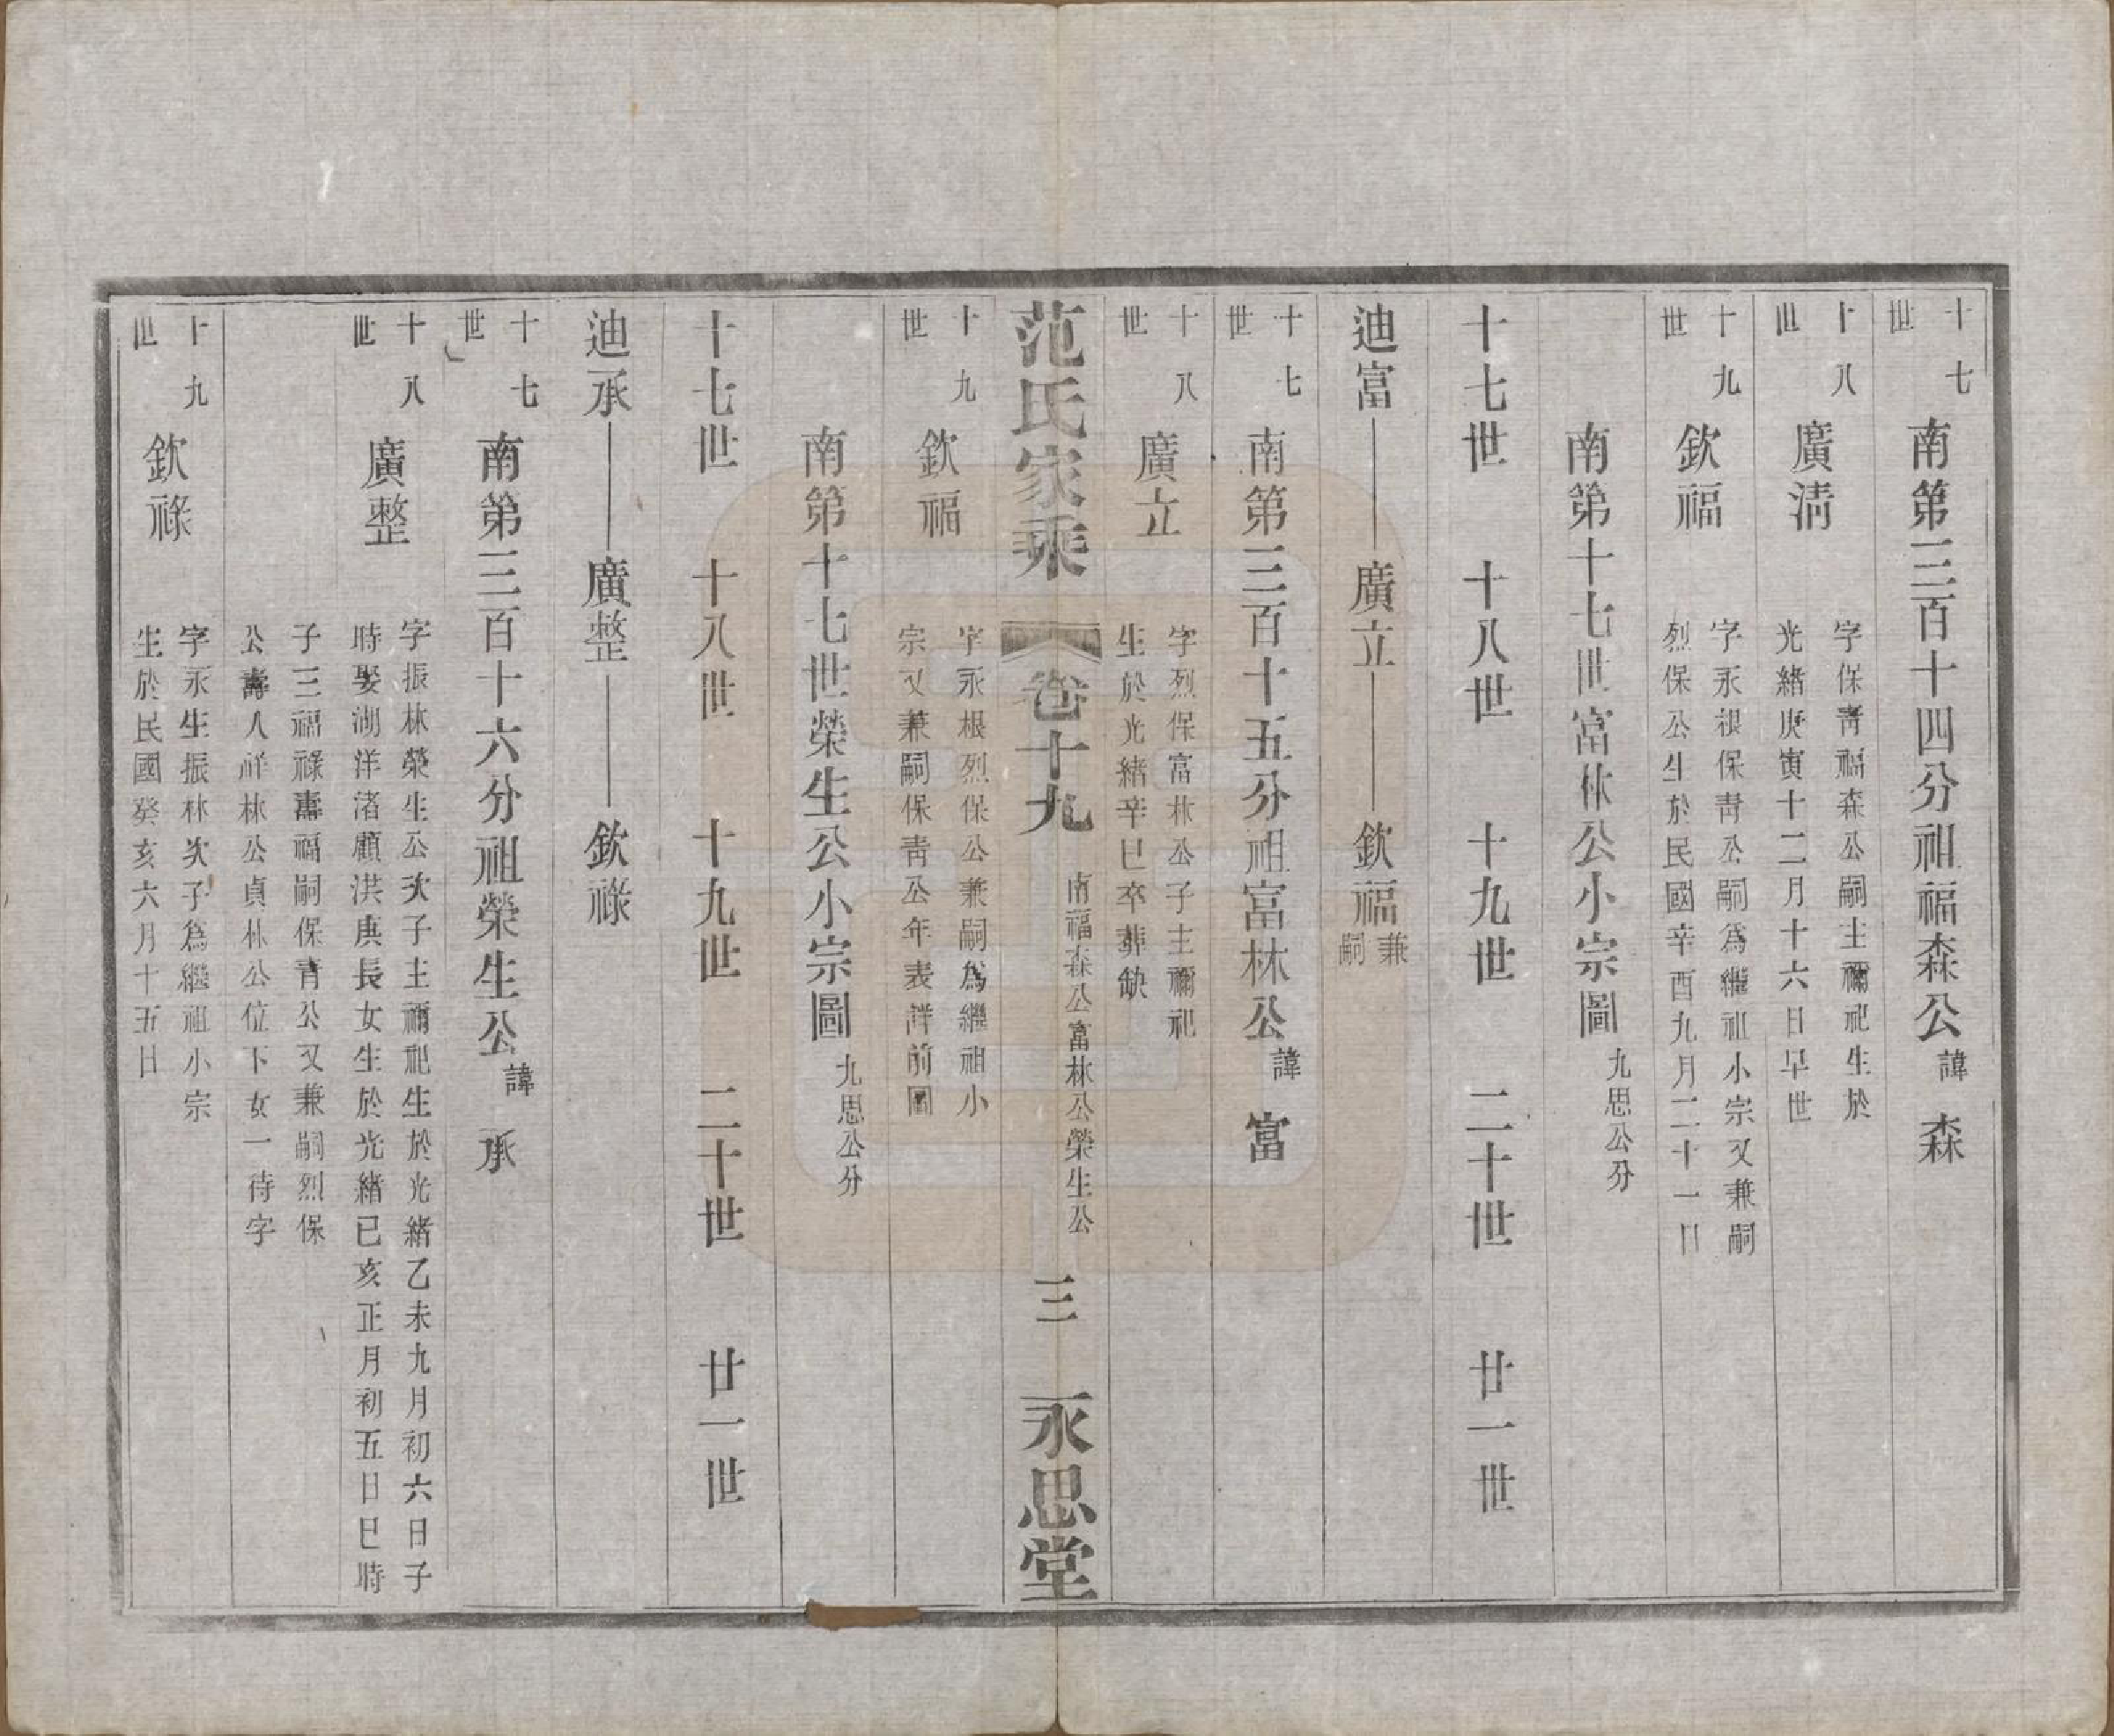 十七世
南第三百十四分祖福森公諱　森
十八世
廣淸
字保靑福森公嗣主禰祀生於
光緖庚寅十二月十六日早世
十九世
欽福
字永根保靑公嗣爲繼祖小宗又兼嗣
烈保公生於民國辛酉九月二十一日
南第十七世富林公小宗圖九思公分
十七世　十八世　十九世　二十世　廿一世
迪富——廣立——欽福兼嗣
十七世
南第三百十五分祖富林公諱　富
十八世
廣立
字烈保富林公子主禰祀
生於光緖辛巳卒葬缺
范氏家乘　卷十九　南福森公富林公榮生公　三　永思堂
十九世
欽福
字永根烈保公兼嗣爲繼祖小
宗又兼嗣保靑公年表詳前圖
南第十七世榮生公小宗圖九思公分
十七世　十八世　十九世　二十世　廿一世
迪承——廣整——欽祿
十七世
南第三百十六分祖榮生公諱　承
十八世
廣整
字振林榮生公次子主禰祀生於光緖乙未九月初六日子
時娶湖洋渚顧洪庚長女生於光緖已亥正月初五日巳時
子三福祿壽福嗣保靑公又兼嗣烈保
公壽入祥林公貞林公位下女一待字
十九世
欽祿
字永生振林次子爲繼祖小宗
生於民國癸亥六月十五日